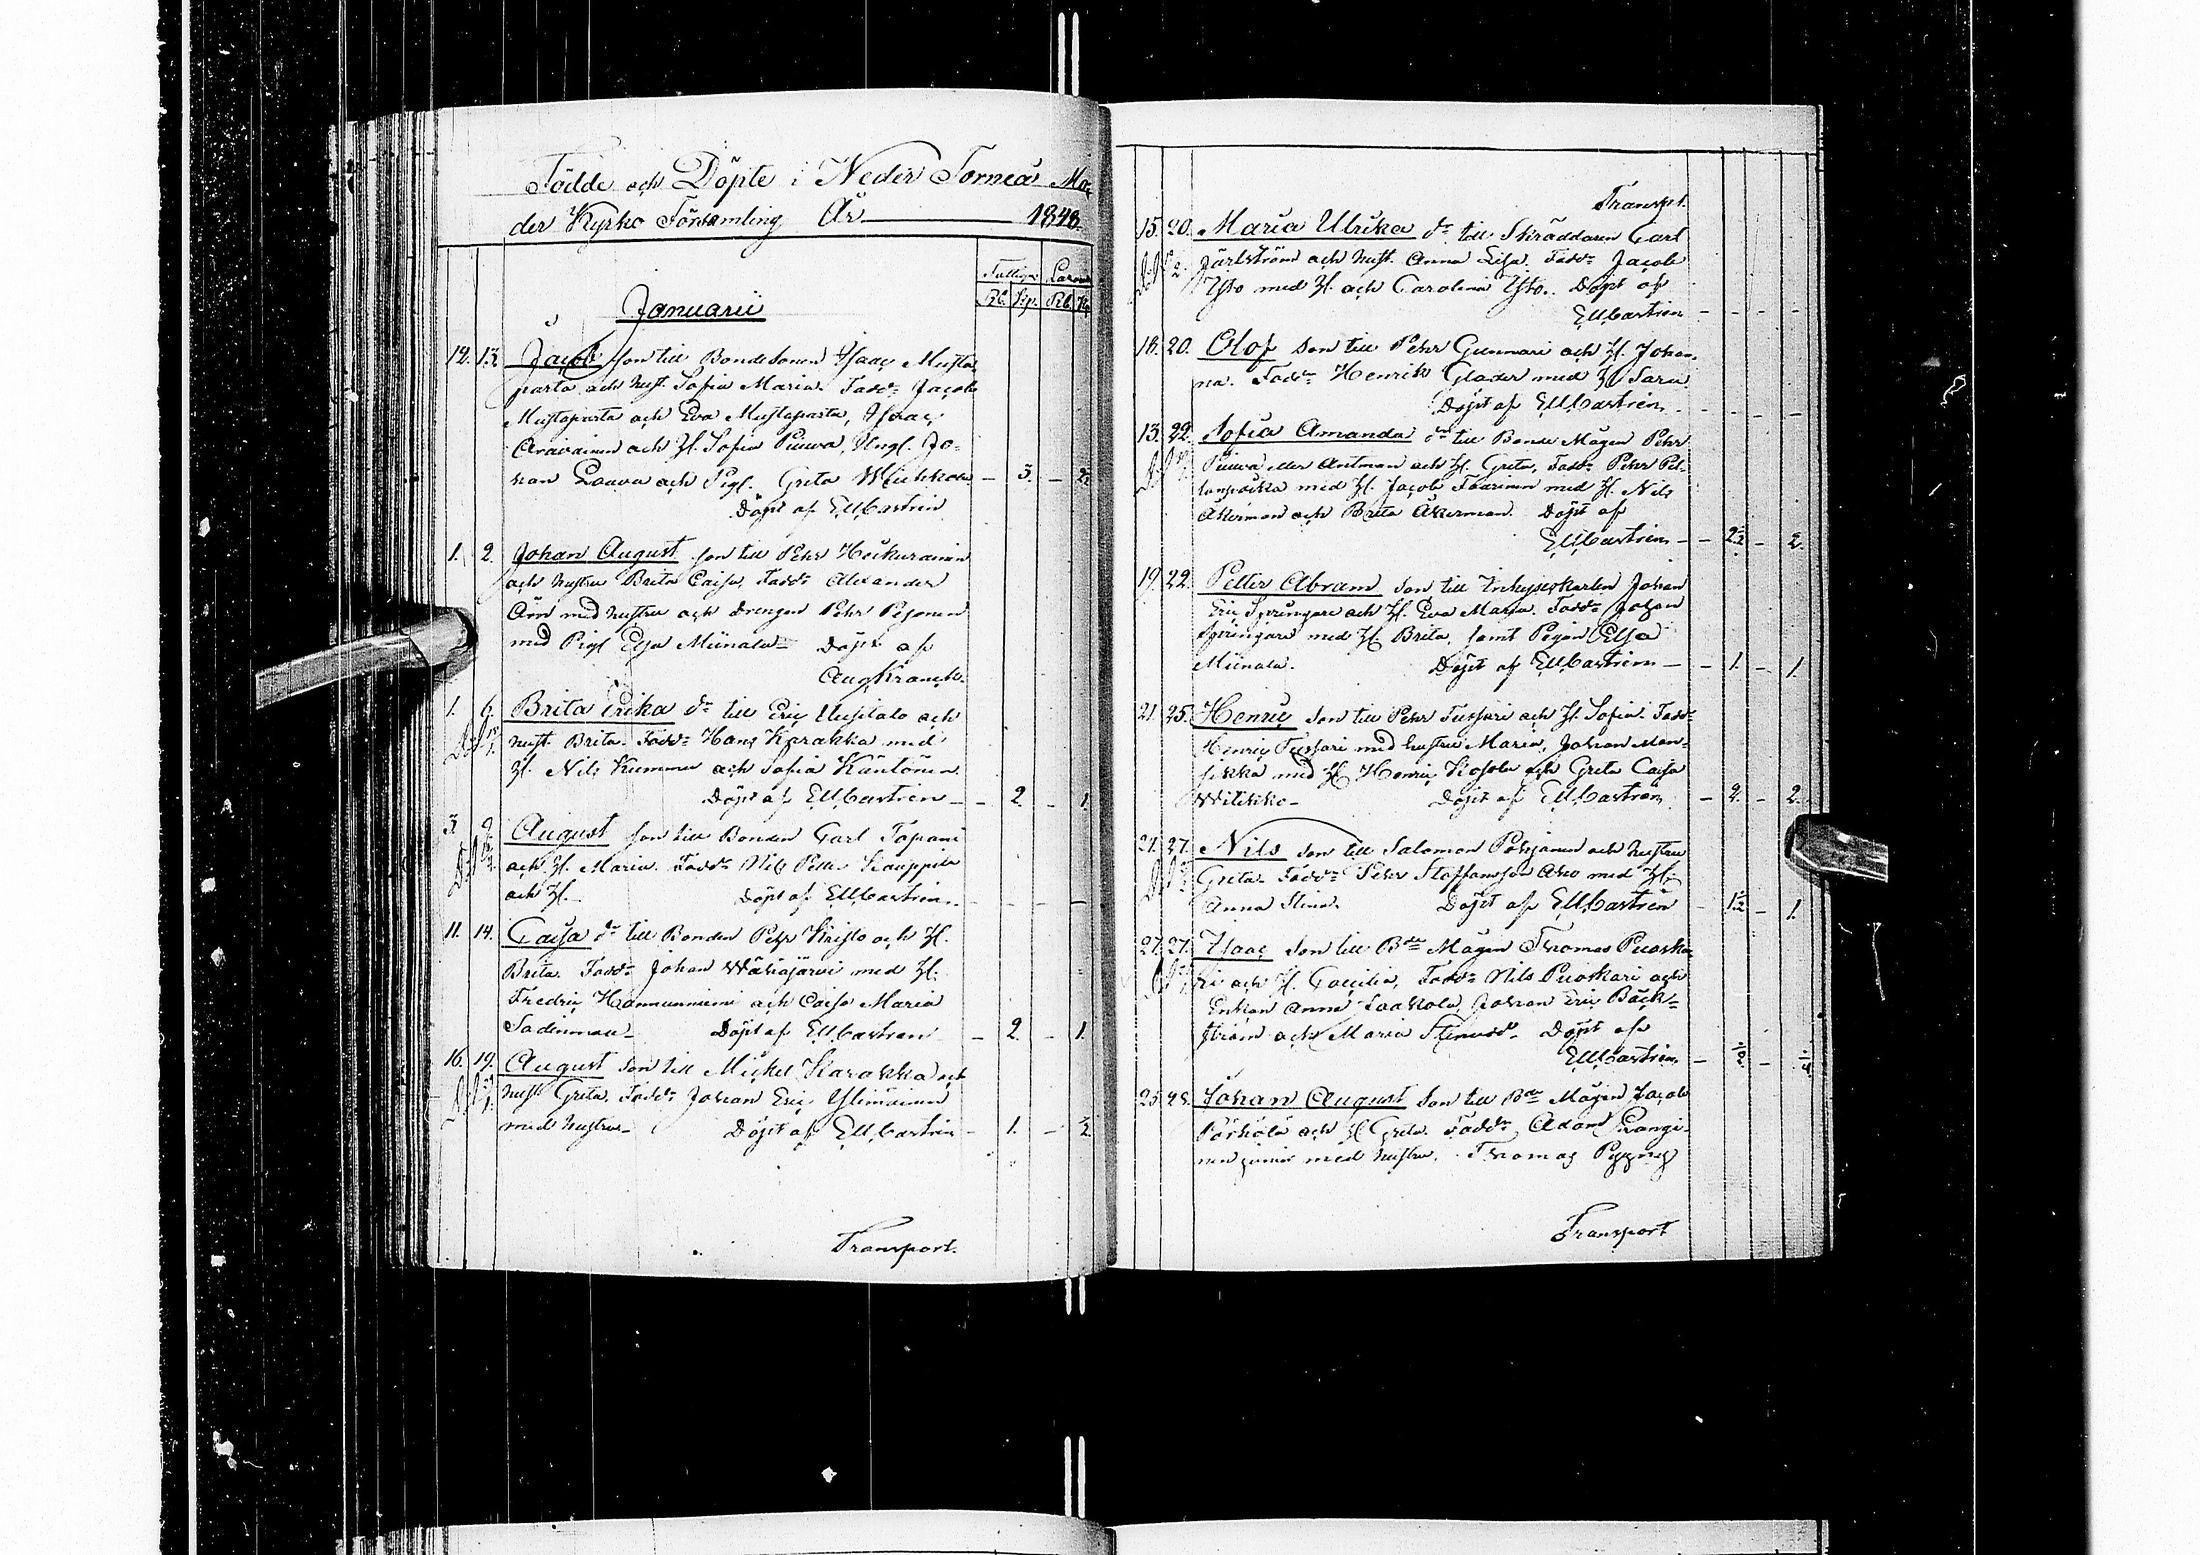 Födde och Döpte i Neder Torneå Mo-
der Kyrko Församling År 1848.
Fattiga
Rb. Kop. Rb. K
Januarii
12. 13. Jacob son till Bondesonen Isaac Musta
parta och hust. Sofia Maria. Fadd: Jacob
Mustaparta och Eva Mustaparta, Isaac
och H. Sofia Piuva, Ungl. Jo-
han Laava och Pigl. Greta - 3. -
Döpt af EMCastrén
1. 2. Johan August son till Pehr Heikuranen
och hustru Brita Caisa, Fadd: Alexander
med hustru och drengen Pehr Pesonen
med Pigl Elsa Miinala Döpt af
Aug Kranck.
1. 6. Brita Erika dr till Eric Uusitalo och
hust. Brita. Fadd: Hans Karakka med
H. Nils Kummu och Sofia Käntönen
Döpt af EMCastrén - - 2. - 1.
3. 9. August son till Bonden Carl Tapani
och H. Maria. Fadd: Nils Petter Kauppila
och H. Döpt af EMCastrén
11. 14. Caisa dr till Bonden Pehr Kristo och H.
Brita. Fadd: Johan Wähäjärvi med H.
Fredric Hannunniemi och Caisa Maria
Döpt af EMCastrén - 2. - 1.
16. 19. August son till Michel Karakka och
hust Greta. Fadd: Johan Eric Ylimäinen
med hustru Döpt af EMCastrén - 1. - ½
Transport.
Transpt.
15. 20. Maria Ulrika dr till Skräddaren Carl
Järlström och hust. Anna Lisa. Fadd: Jacob
Ysto med H. och Carolina Ysto. Döpt af
EMCastrén - - - -
18. 20. Olof son till Pehr Gunnari och H. Johan-
na. Fadd: Henrik Glader med H Sara
Döpt af EMCastrén - - - -
13. 22. Sofia Amanda dr till Bonde Mågen Pehr
Piuva eller Antman och H. Greta, Fadd: Pehr Pel-
med H. Jacob med H. Nils
Åkerman och Brita Åkerman. Döpt af
EMCastrén - - 2½ - 2.
19. 22. Petter Abram son till Inhyseskarlen Johan
Eric Springare och H. Eva Maria. Fadd: Johan
Springare med H. Brita, samt Pigan Elsa
Miinala. Döpt af EMCastrén - - 1. - 1.
21. 25. Henric son till Pehr Tussari och H. Sofia. Fadd:
Henric Tussari med hustru Maria, Johan Man-
sikka med H Henric Kosola och Greta Caisa
Döpt af EMCastrén - 2. - 2.
27. Nils son till Salomon Pohjanen och hustru
Greta. Fadd: Pehr Staffansson Aho med H.
Anna Stina. Döpt af EMCastrén - 1½ - 1.
27. 27. Isaac son till Bde Mågen Thomas Puoska-
ri och H. Caecilia, Fadd: Nils Puoskari och
Enkan Anna Laakola, Johan Eric Bäck-
ström och Maria Döpt af
EMCastrén - ½ - ½
25. 28. Johan August son till Bde Mågen Jacob
Pörhölä och H Greta. Fadd: Adam
med hustru. Thomas
Transport